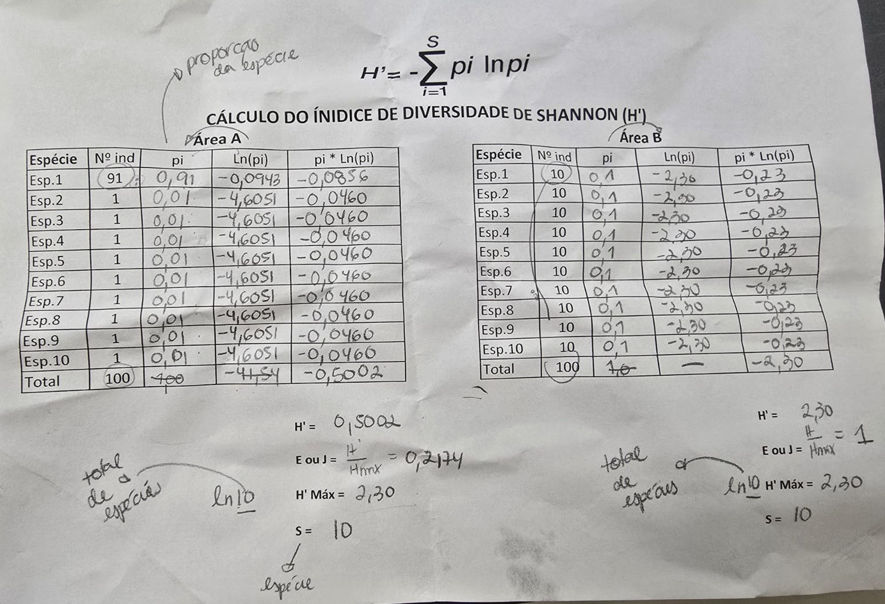 proporção
da espécie
H'= -∑ pi lnpi
S
i=1
CÁLCULO DO ÍNIDICE DE DIVERSIDADE DE SHANNON (H')
Área A
Espécie Nº ind pi Ln(pi) pi * Ln(pi)
Esp.1 91 0,91 -0,0943 -0,0856
Esp.2 1 0,01 -4,6051 -0,0460
Esp.3 1 0,01 -4,6051 -0,0460
Esp.4 1 0,01 -4,6051 -0,0460
Esp.5 1 0,01 -4,6051 -0,0460
Esp.6 1 0,01 -4,6051 -0,0460
Esp.7 1 0,01 -4,6051 -0,0460
Esp.8 1 0,01 -4,6051 -0,0460
Esp.9 1 0,01 -4,6051 -0,0460
Esp.10 1 0,01 -4,6051 -0,0460
Total 100 100 -41,54 -0,5002
H' = 0,5002
E ou J = H'/Hmax = 0,2174
total
de
espécies
ln10 H' Máx = 2,30
S = 10
espécie
Área B
Espécie Nº ind pi Ln(pi) pi * Ln(pi)
Esp.1 10 0,1 -2,30 -0,23
Esp.2 10 0,1 -2,30 -0,23
Esp.3 10 0,1 -2,30 -0,23
Esp.4 10 0,1 -2,30 -0,23
Esp.5 10 0,1 -2,30 -0,23
Esp.6 10 0,1 -2,30 -0,23
Esp.7 10 0,1 -2,30 -0,23
Esp.8 10 0,1 -2,30 -0,23
Esp.9 10 0,1 -2,30 -0,23
Esp.10 10 0,1 -2,30 -0,23
Total 100 1,0 — -2,30
H' = 2,30
E ou J = H/Hmax = 1
total
de
espécies
ln10 H' Máx = 2,30
S = 10